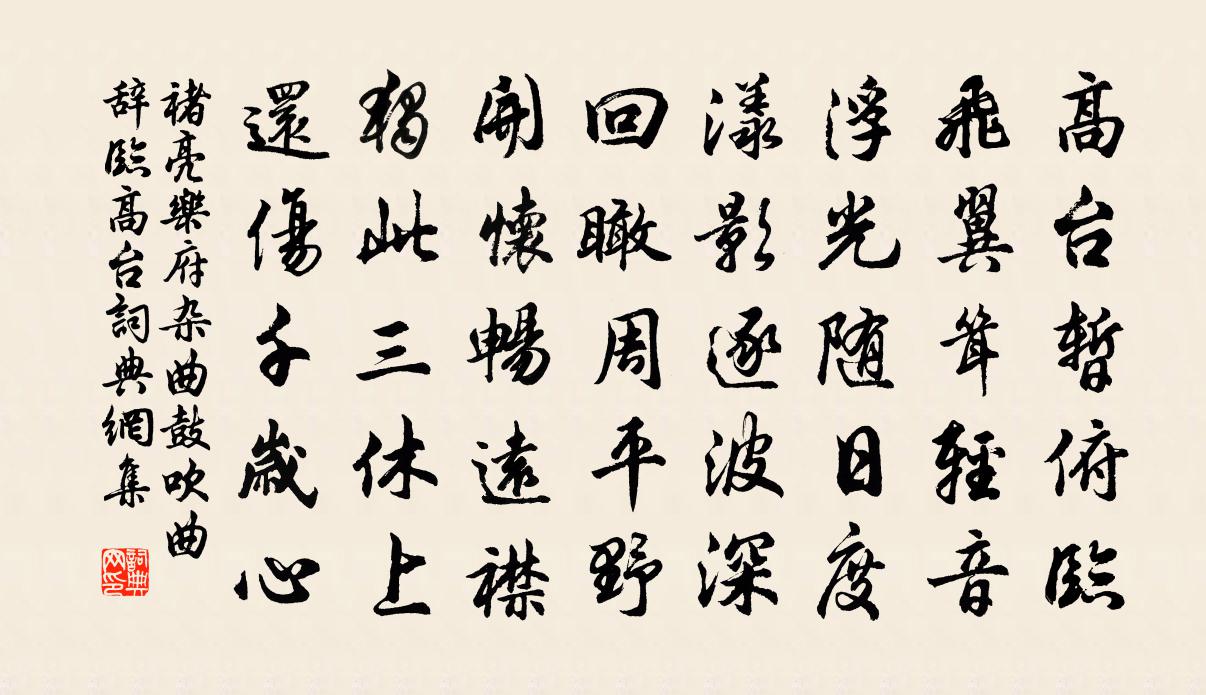 高台暫俯臨
飛翼聳輕音
浮光随日度
漾影逐波深
回瞰周平野
開懷暢遠襟
獨此三休上
還傷千歲心
褚亮樂府杂曲鼓吹曲
辞臨高台詞典網集
詞典网印